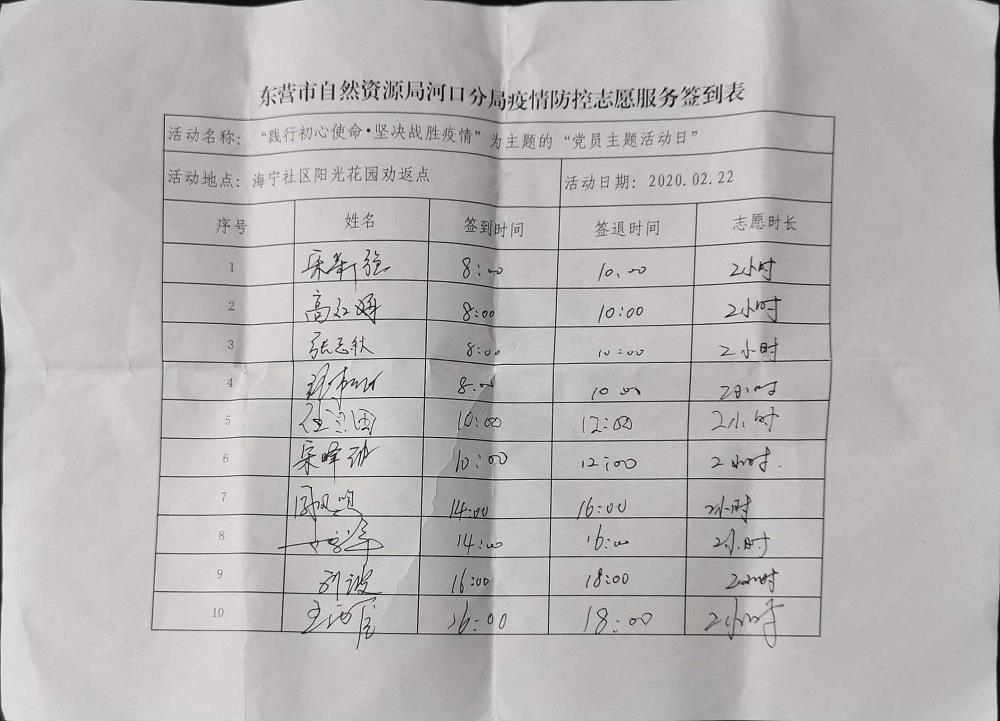 东营市自然资源局河口分局疫情防控志愿服务签到表
活动名称：“践行初心使命·坚决战胜疫情”为主题的“党员主题活动日”
活动地点：海宁社区阳光花园劝返点 活动日期：2020.02.22
序号 姓名 签到时间 签退时间 志愿时长
1 8:00 10:00 2小时
2 高红 8:00 10:00 2小时
3 张志秋 8:00 10:00 2小时
4 8:00 10:00 2小时
5 10:00 12:00 2小时
6 宋峰 10:00 12:00 2小时
7 14:00 16:00 2小时
8 14:00 16:00 2小时
9 刘波 16:00 18:00 2小时
10 王 16:00 18:00 2小时